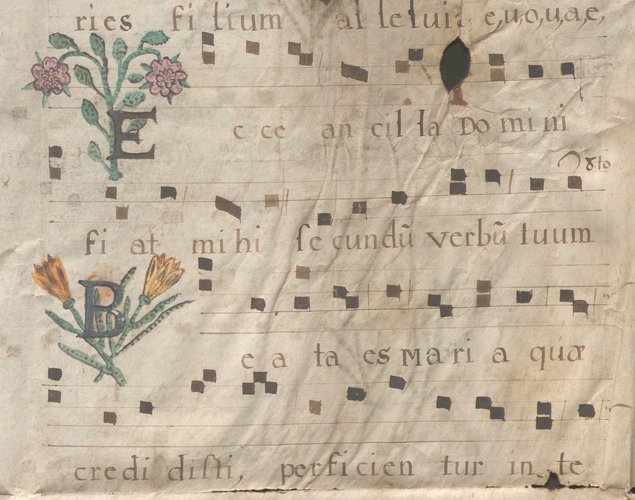 ries fi lium al leluia e,u,o,u,a,e,
E c ce an cil la Do mi ni
8 to
fi at mi hi se cundũ verbũ tuum
B e a ta es Ma ri a quæ
credi disti, perficien tur in te